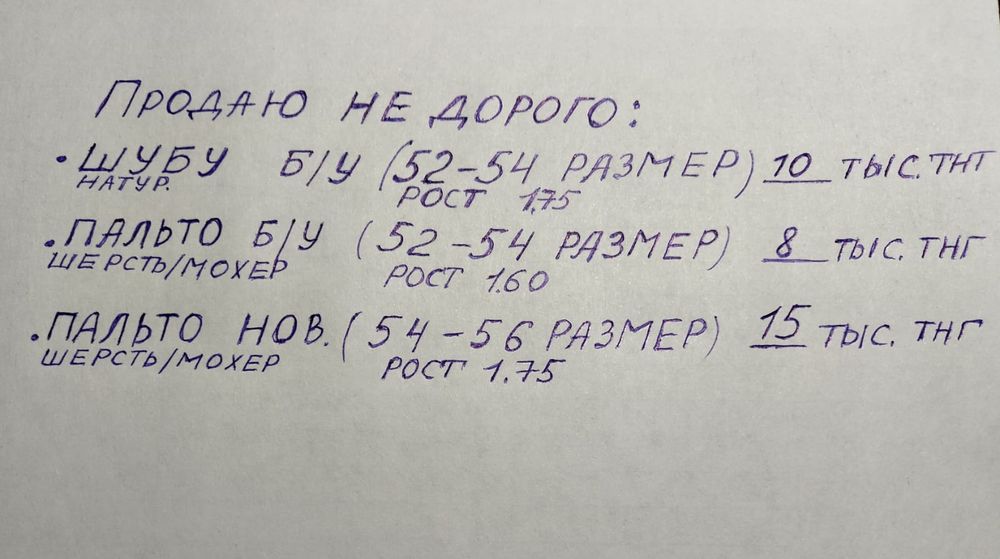 ПРОДАЮ НЕ ДОРОГО:
• ШУБУ Б/У (52-54 РАЗМЕР) 10 ТЫС. ТНГ
НАТУР. РОСТ 1.75
• ПАЛЬТО Б/У (52-54 РАЗМЕР) 8 ТЫС. ТНГ
ШЕРСТЬ/МОХЕР РОСТ 1.60
• ПАЛЬТО НОВ. (54-56 РАЗМЕР) 15 ТЫС. ТНГ
ШЕРСТЬ/МОХЕР РОСТ 1.75